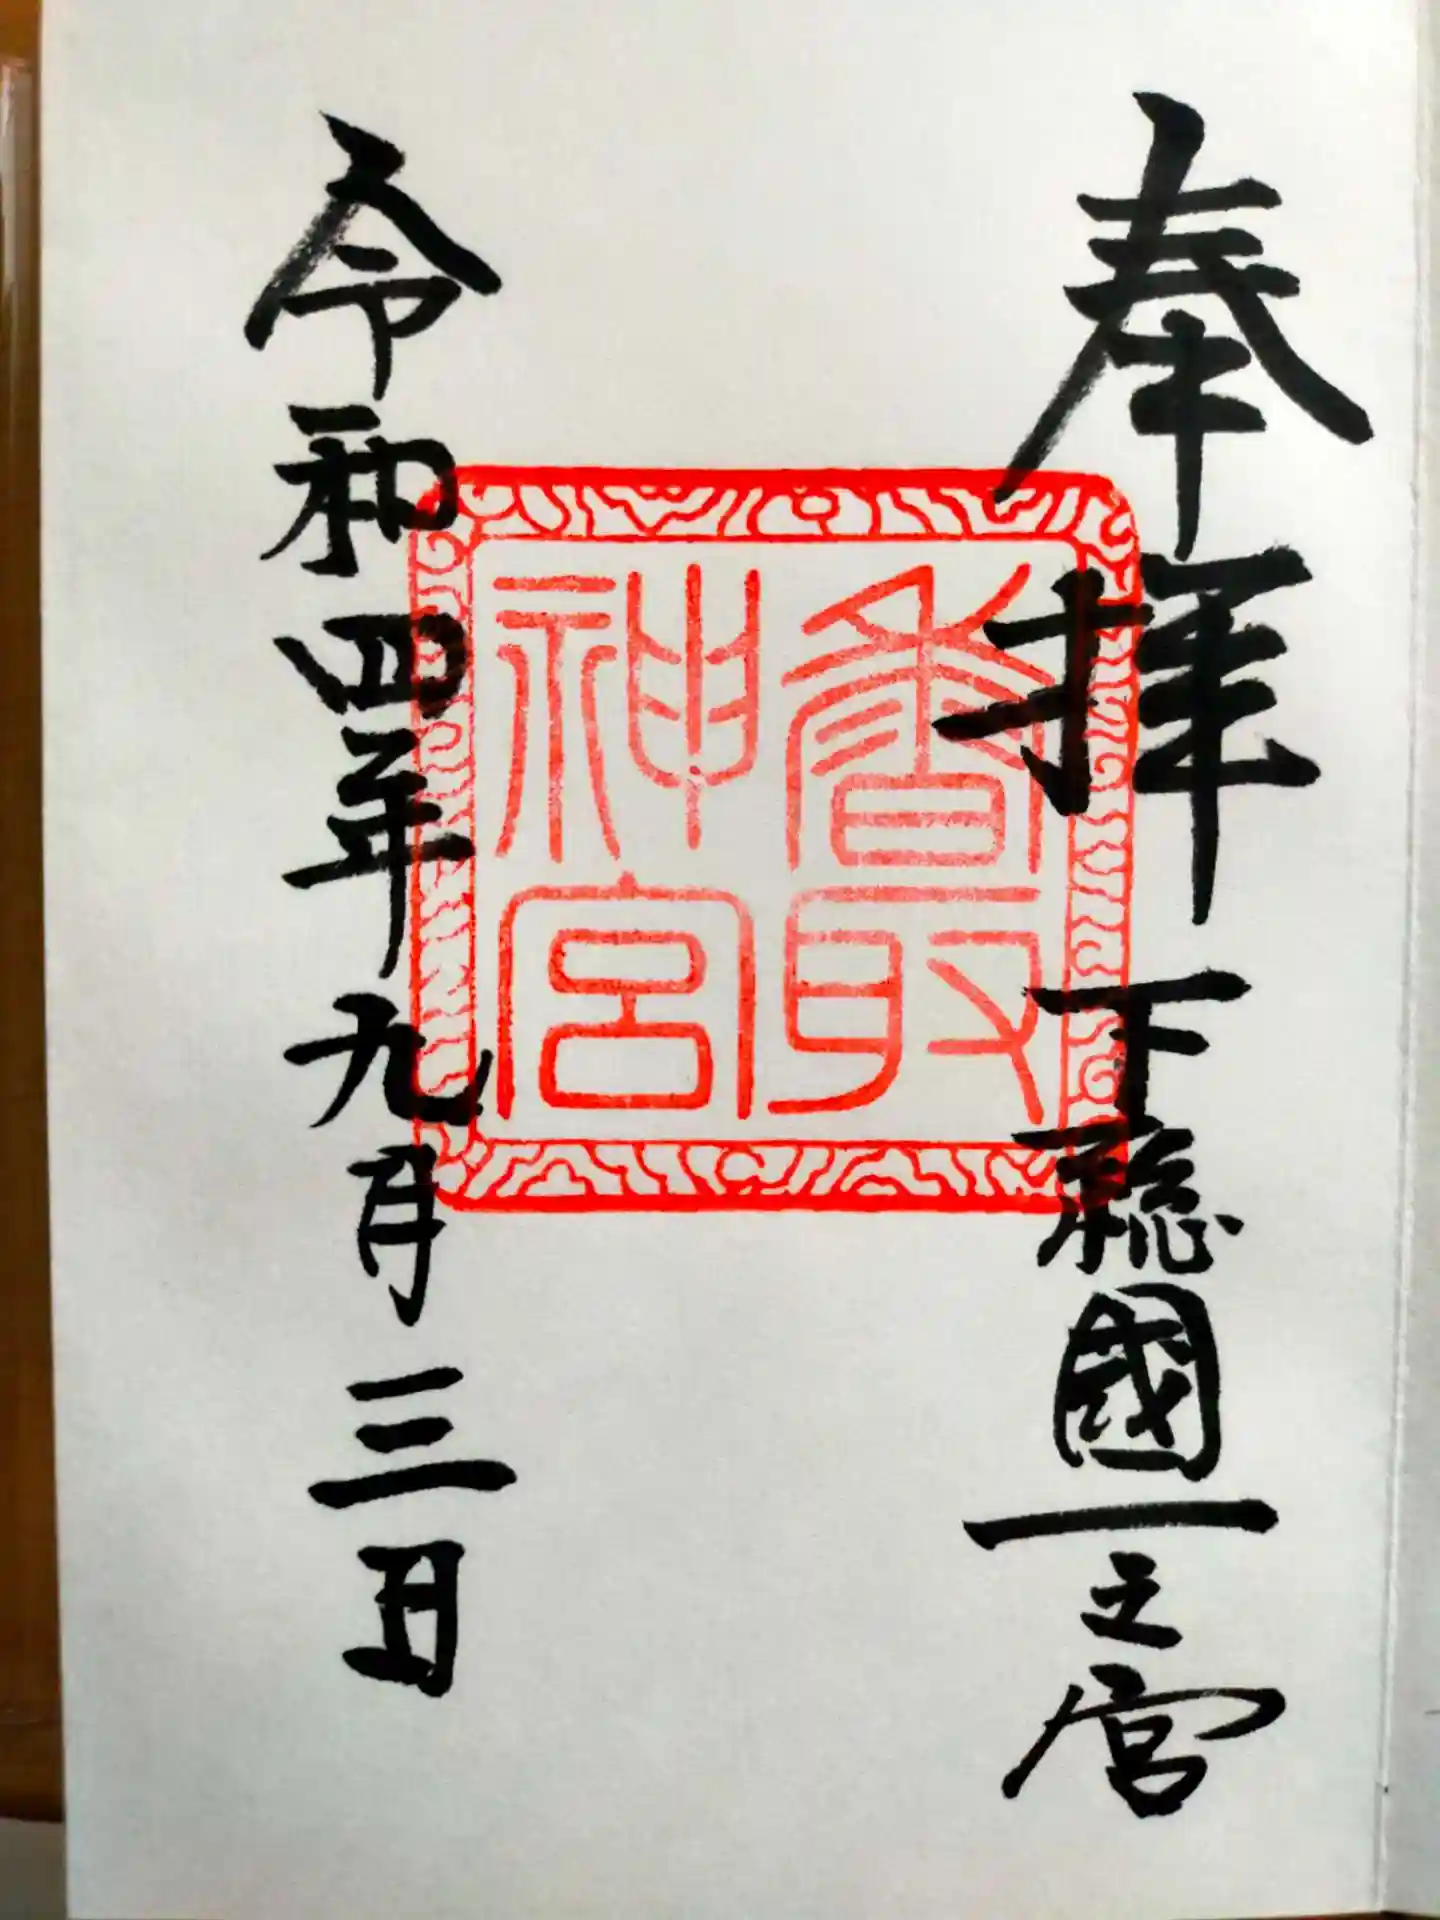 奉拝 下総國一之宮
香取
神宮
令和四年九月三日